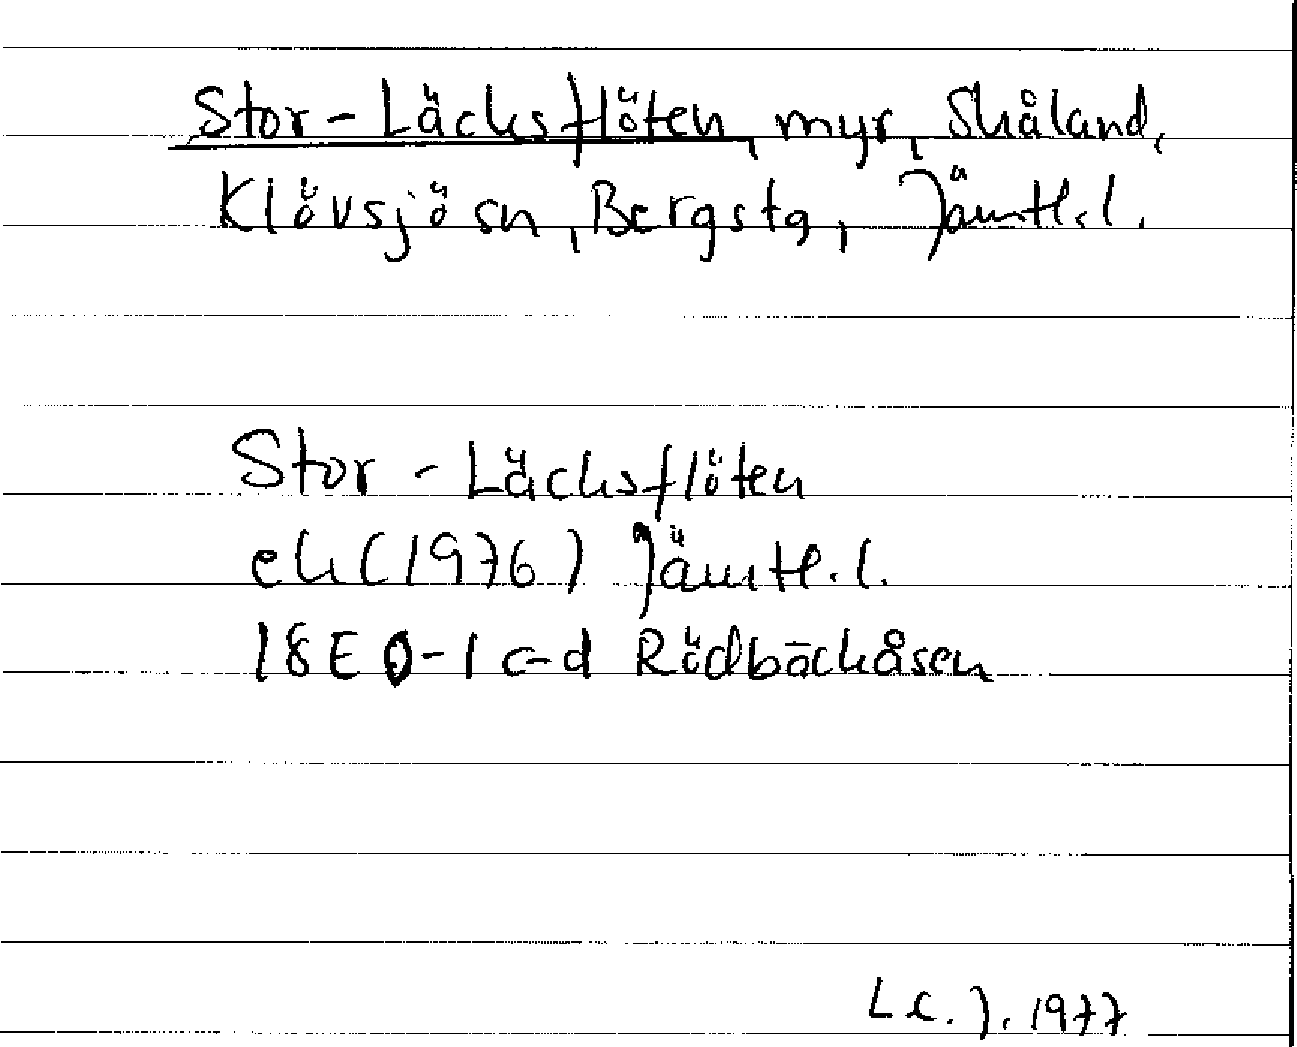 Stor-Läcksflöten, myr, Skåland,
Klövsjö sn, Bergs tg, Jämtl. l.
Stor-Läcksflöten
ek (1976) Jämtl. l.
18E 0-1 c-d Rödbäckåsen
L C. J. 1977